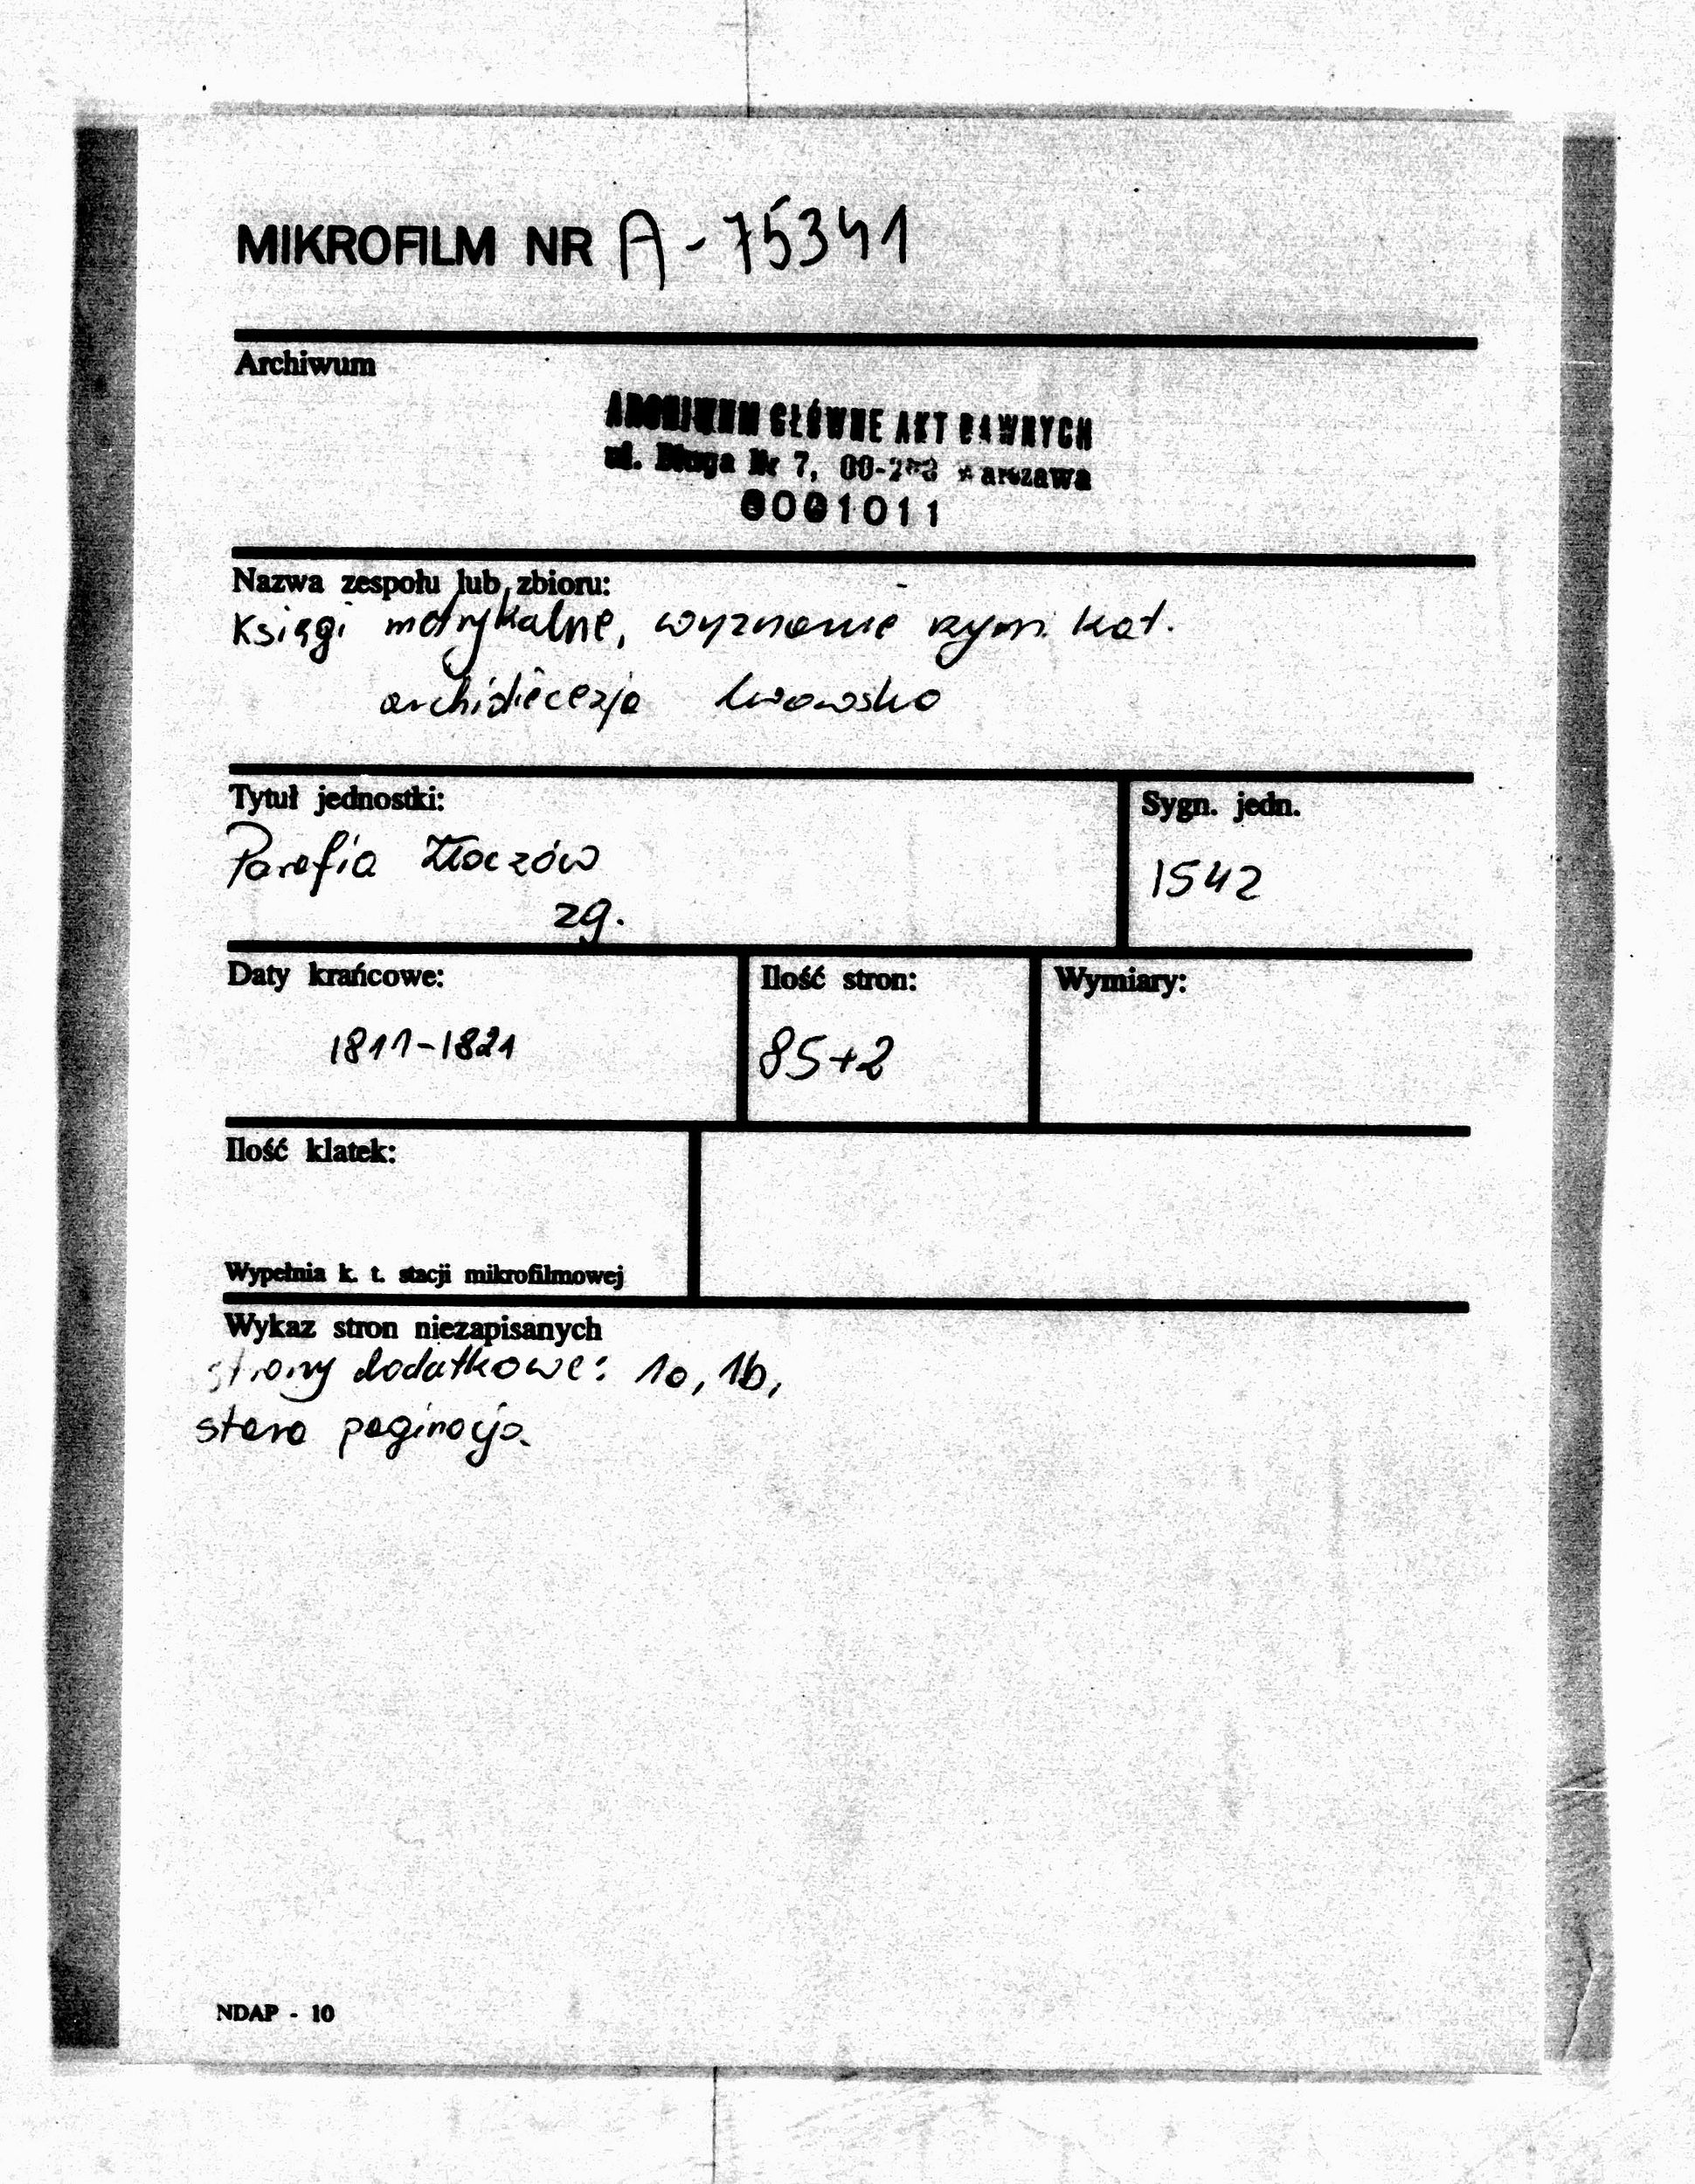 MIKROFILM NR A-75341
Archiwum
ARCHIWUM GŁÓWNE AKT DAWNYCH
ul. Długa Nr 7, 00-263 Warszawa
0001011
Nazwa zespołu lub zbioru:
Księgi metrykalne, wyznanie rzym. kat.
archidiecezja lwowska
Tytuł jednostki:
Parafia Złoczów
zg.
Sygn. jedn.
1542
Daty krańcowe:
1811-1821
Ilość stron:
85+2
Wymiary:
Ilość klatek:
Wypełnia k. t. stacji mikrofilmowej
Wykaz stron niezapisanych
strony dodatkowe: 1a, 1b,
stara paginacja.
NDAP - 10